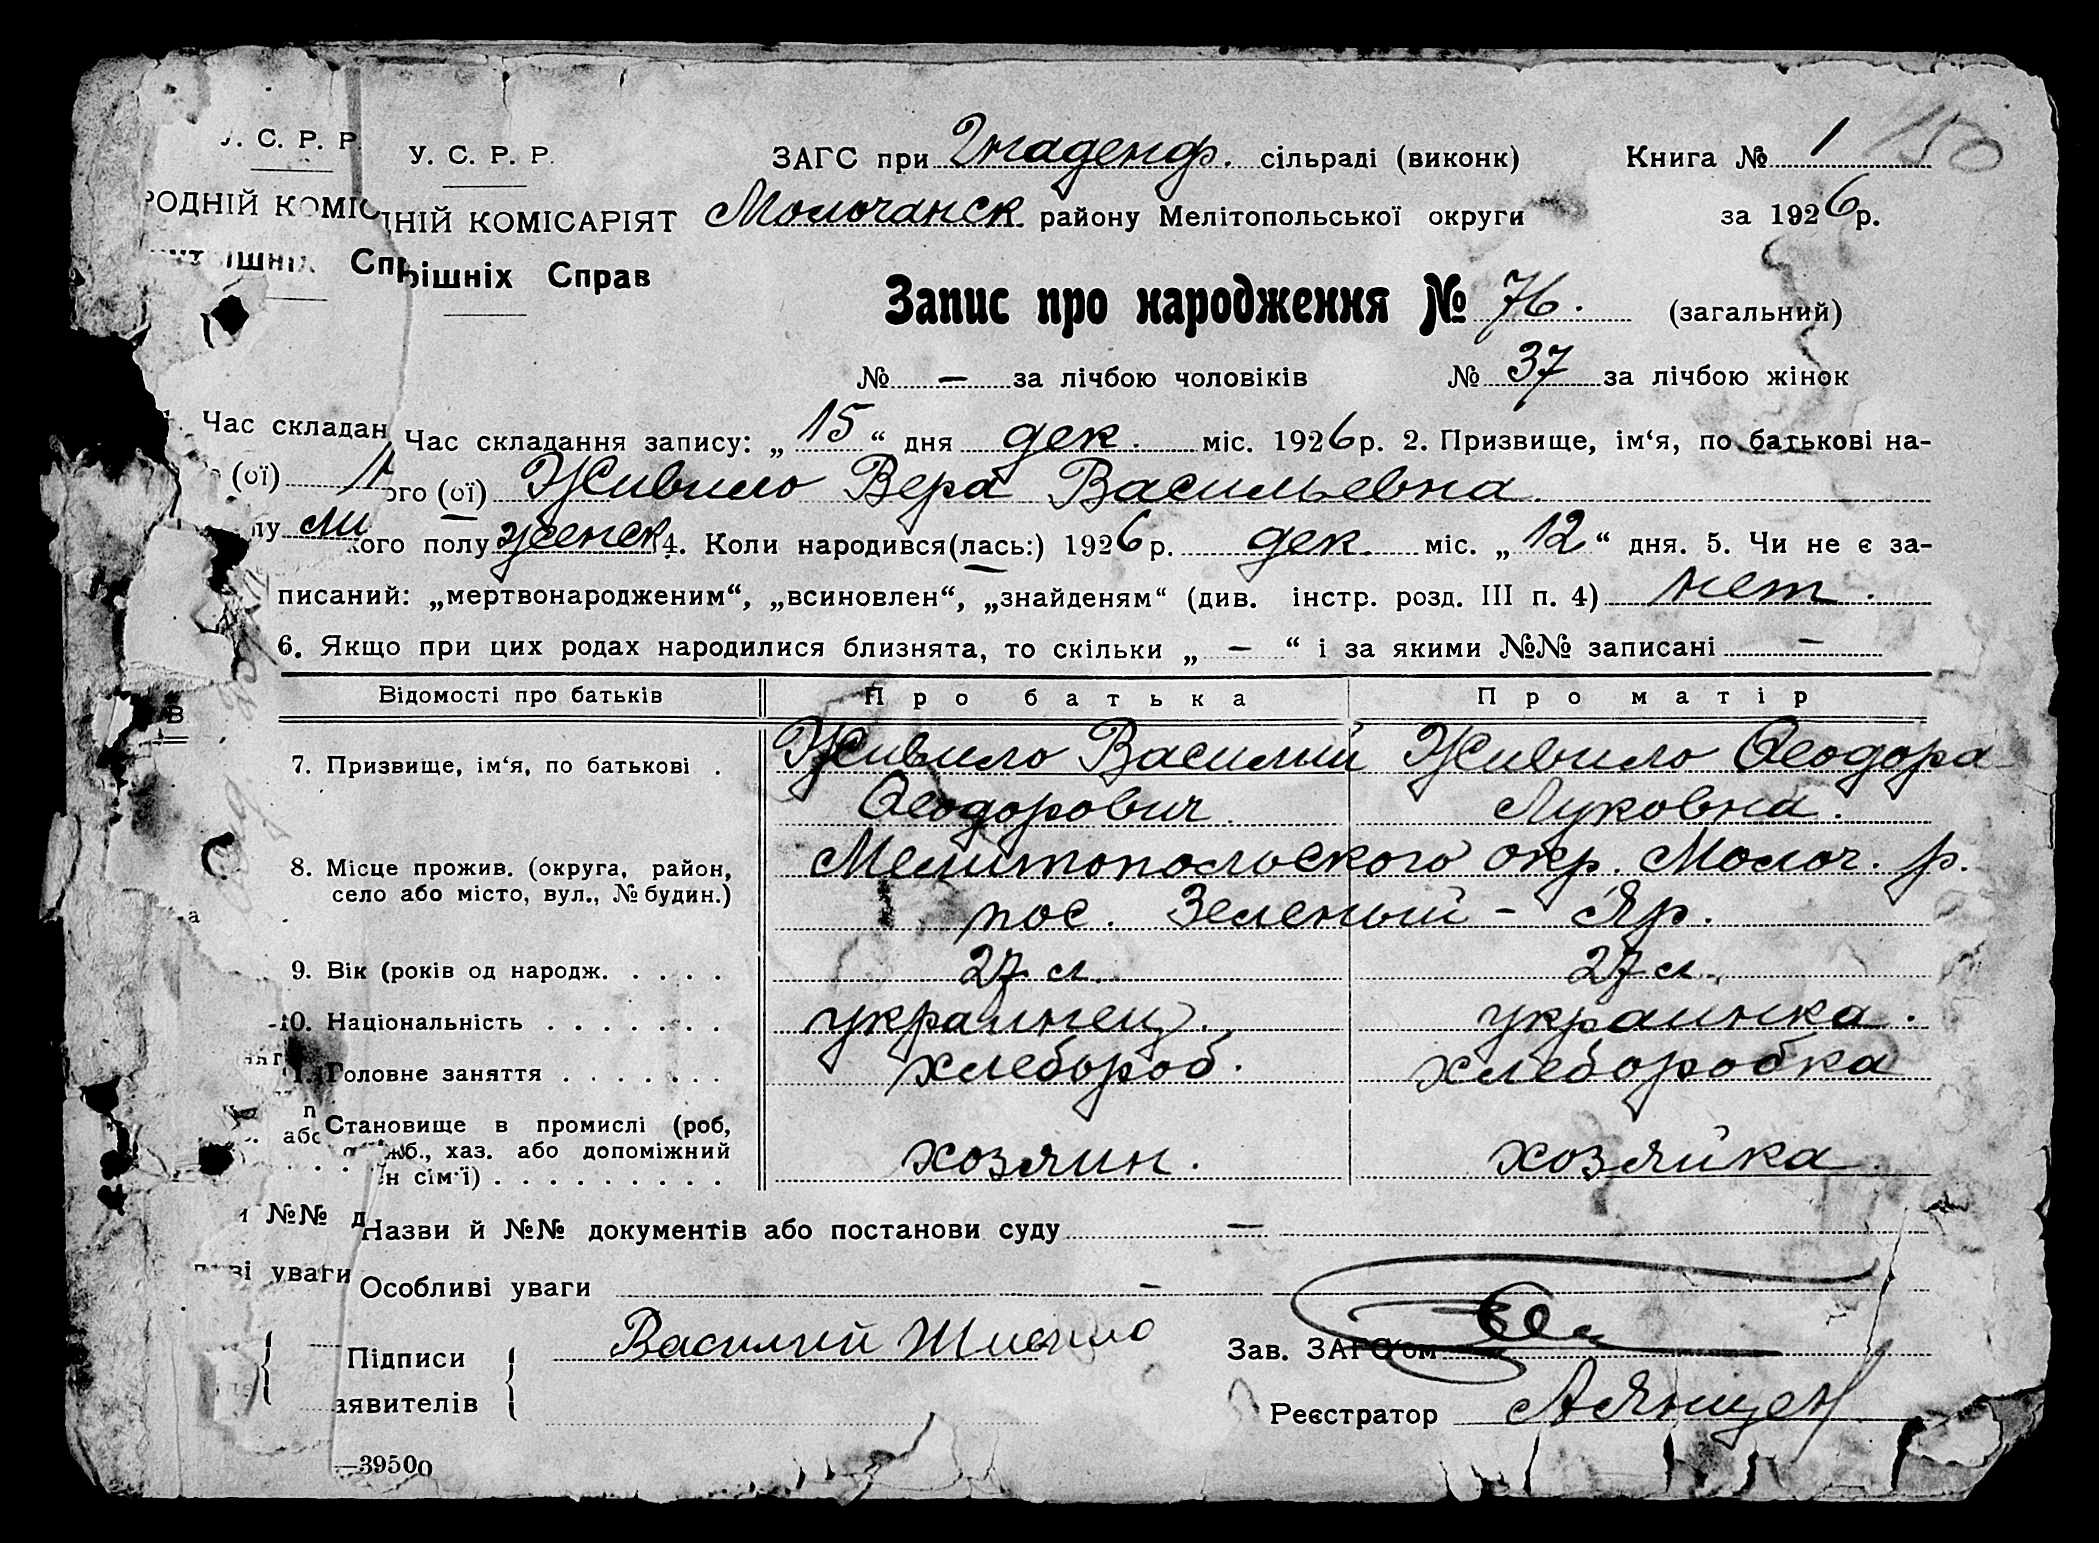 У. С. Р. Р.
ЗАГС при Гнаденф. сільраді (виконк) Книга № 1 150
ДНІЙ КОМІСАРІЯТ Молочанск району Мелітопольської округи за 1926 р.
рішніх Справ
Запис про народження № 76. (загальний)
№ — за лічбою чоловіків № 37 за лічбою жінок
Час складання запису: „ 15 “ дня дек. міс. 1926 р. 2. Призвище, ім‘я, по батькові на-
ого (ої) Живило Вера Васильевна
кого полу женск 4. Коли народився(лась:) 1926 р. дек. міс. „ 12 “ дня. 5. Чи не є за-
писаний: „мертвонародженим“, „всиновлен“, „знайденям“ (див. інстр. розд. III п. 4) нет.
6. Якщо при цих родах народилися близнята, то скільки „ — “ і за якими №№ записані —
Відомості про батьків Про батька Про матір
7. Призвище, ім‘я, по батькові . Живило Василий Живило Феодора
Феодорович Луковна.
8. Місце прожив. (округа, район, Мелитопольского окр. Молоч. р.
село або місто, вул., № будин.) пос. Зеленый - Яр.
9. Вік (років од народж. . . . . 27 л. 27 л.
10. Національність . . . . . . . украинец. украинка.
1. Головне заняття . . . . . . . хлебороб. хлеборобка
Становище в промислі (роб,
жб., хаз. або допоміжний хозяин. хозяйка.
н сім‘ї) . . . . . . . . .
Назви й №№ документів або постанови суду —
Особливі уваги —
Підписи Василий Живило Зав. ЗАГС‘ом
аявителів Реєстратор
—39500